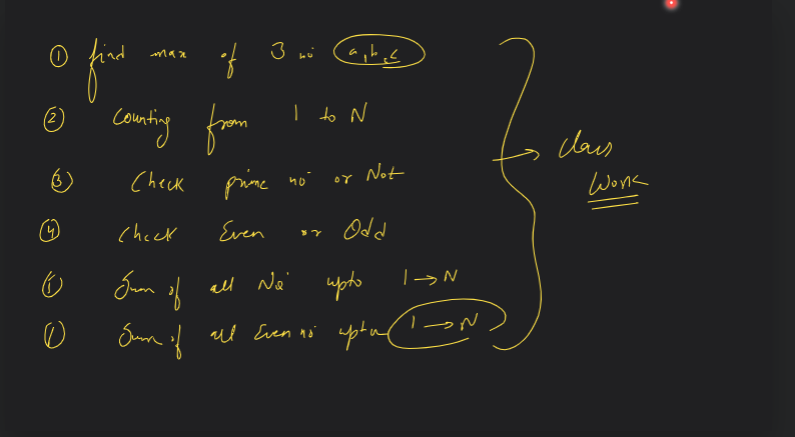 ① find max of 3 no a,b,c
② Counting from 1 to N
③ Check prime no or Not
④ Check Even or Odd
⑤ Sum of all No upto 1 → N
Sum of all Even no upto 1 → N
→ Class
Work